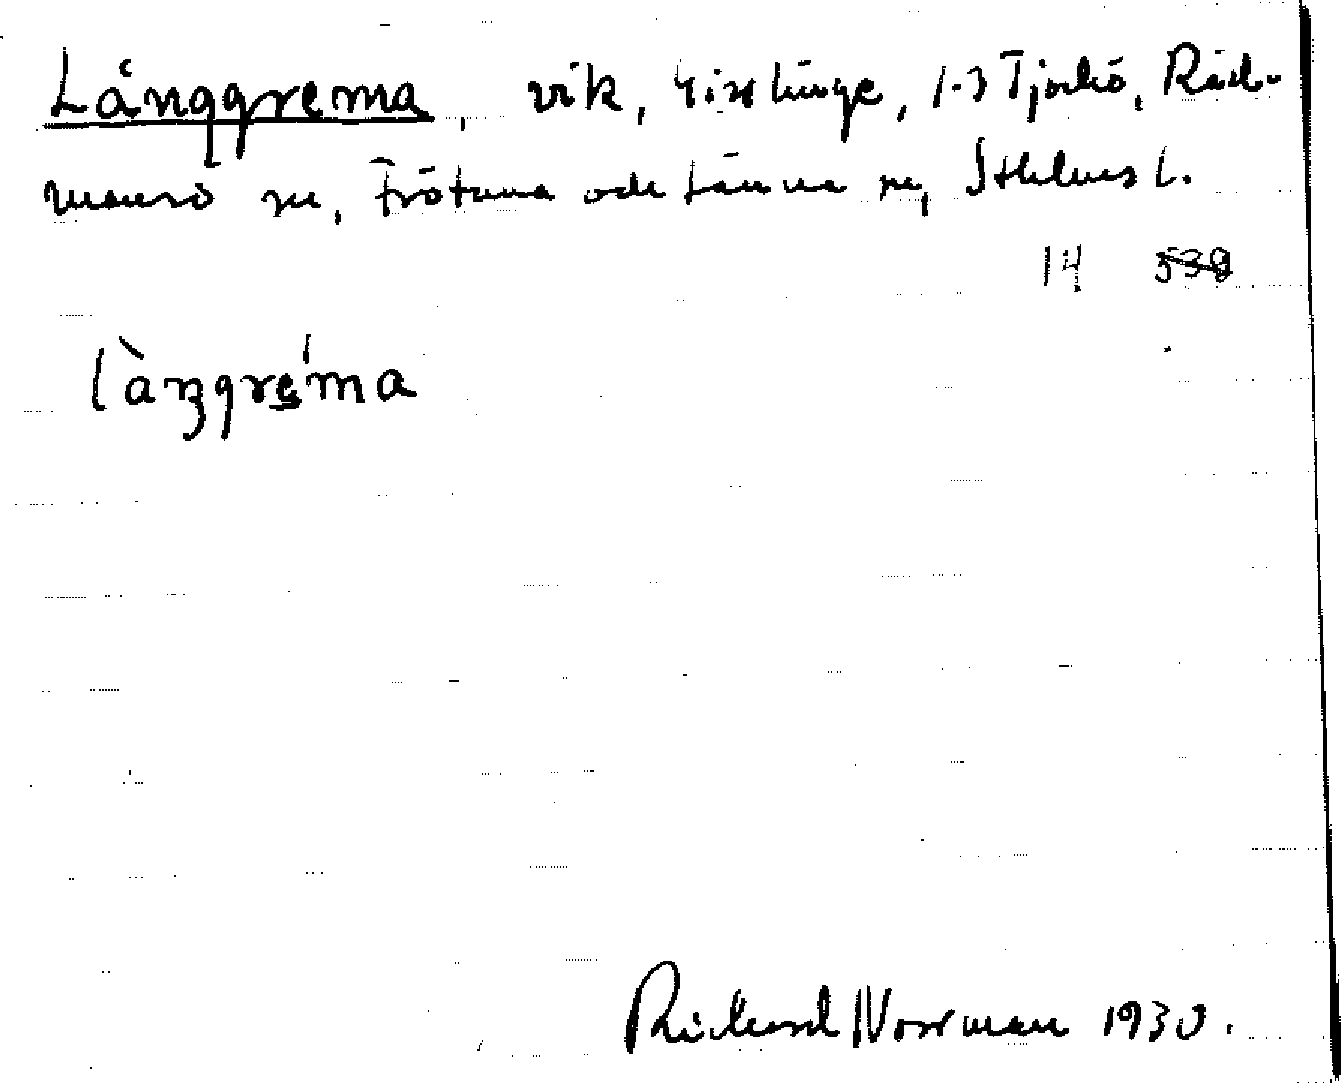 Långgrema, vik, Gisslinge, 1-3 Tjockö, Råd-
mansö sn, Frötuna och Länna sn, Sthlms l.
14 539
làŋgrema
Richard Norrman 1930.